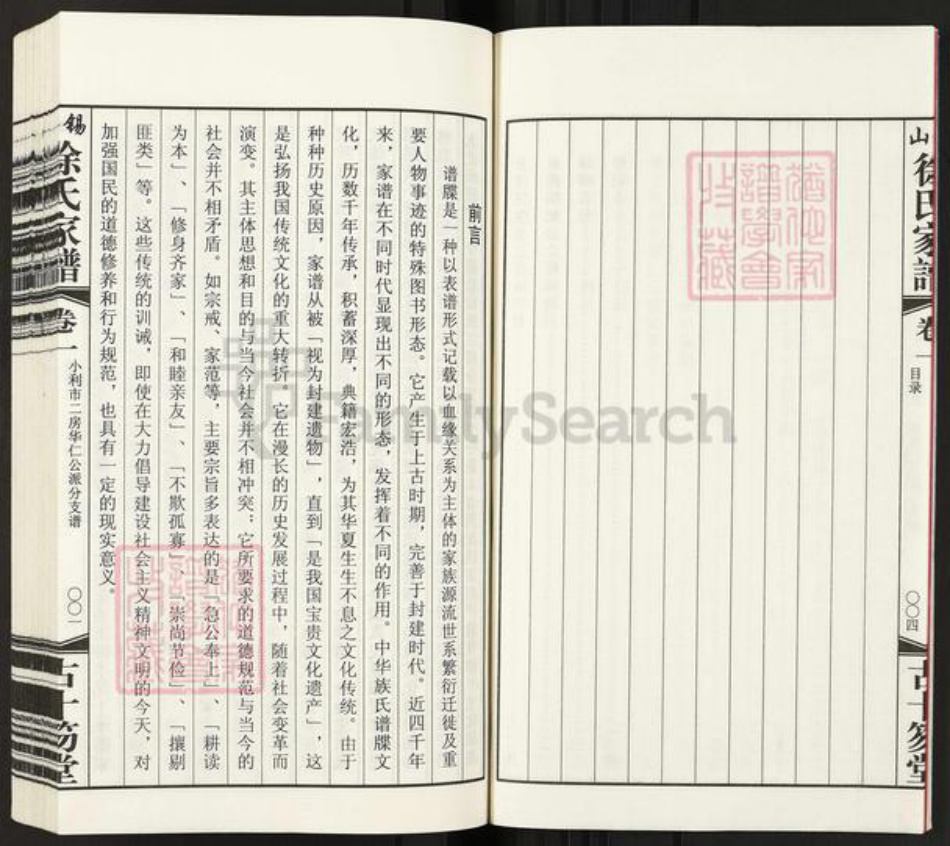 山
徐氏家譜
卷一
目录
〇〇四
古十笏堂
前言
谱牒是一种以表谱形式记载以血缘关系为主体的家族源流世系繁衍迁徙及重
要人物事迹的特殊图书形态。它产生于上古时期，完善于封建时代。近四千年
来，家谱在不同时代显现出不同的形态，发挥着不同的作用。中华族氏谱牒文
化，历数千年传承，积蓄深厚，典籍宏浩，为其华夏生生不息之文化传统。由于
种种历史原因，家谱从被「视为封建遗物」，直到「是我国宝贵文化遗产」，这
是弘扬我国传统文化的重大转折。它在漫长的历史发展过程中，随着社会变革而
演变。其主体思想和目的与当今社会并不相冲突；它所要求的道德规范与当今的
社会并不相矛盾。如宗戒、家范等，主要宗旨多表达的是「急公奉上」、「耕读
为本」、「修身齐家」、「和睦亲友」、「不欺孤寡」、「崇尚节俭」、「攘剔
匪类」等。这些传统的训诫，即使在大力倡导建设社会主义精神文明的今天，对
加强国民的道德修养和行为规范，也具有一定的现实意义。
錫
徐氏家譜
卷一
小利市二房华仁公派分支谱
〇〇一
古十笏堂
FamilySearch